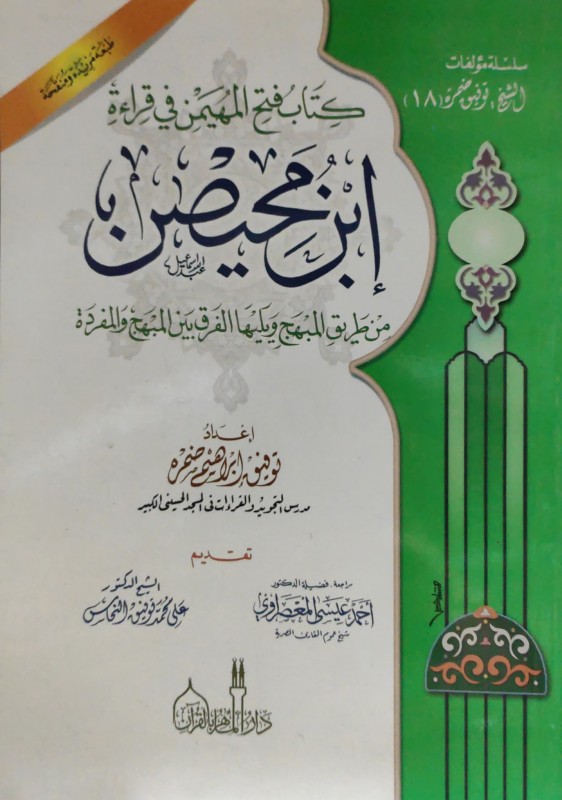 طبعة مزيدة ومنقحة
سلسلة مؤلفات
الشيخ: توفيق ضمرة (١٨)
كتاب فتح المهيمن في قراءة
ابن محيصن
من طريق المبهج ويليها الفرق بين المبهج والمفردة
إعداد
توفيق إبراهيم ضمره
مدرس التجويد والقراءات في المسجد الحسيني الكبير
تقديم
مراجعة، فضيلة الدكتور
أحمد عيسى المعصراوي
شيخ عموم المقارئ المصرية
الشيخ الدكتور
علي محمد توفيق النحاس
دار الماهر بالقرآن